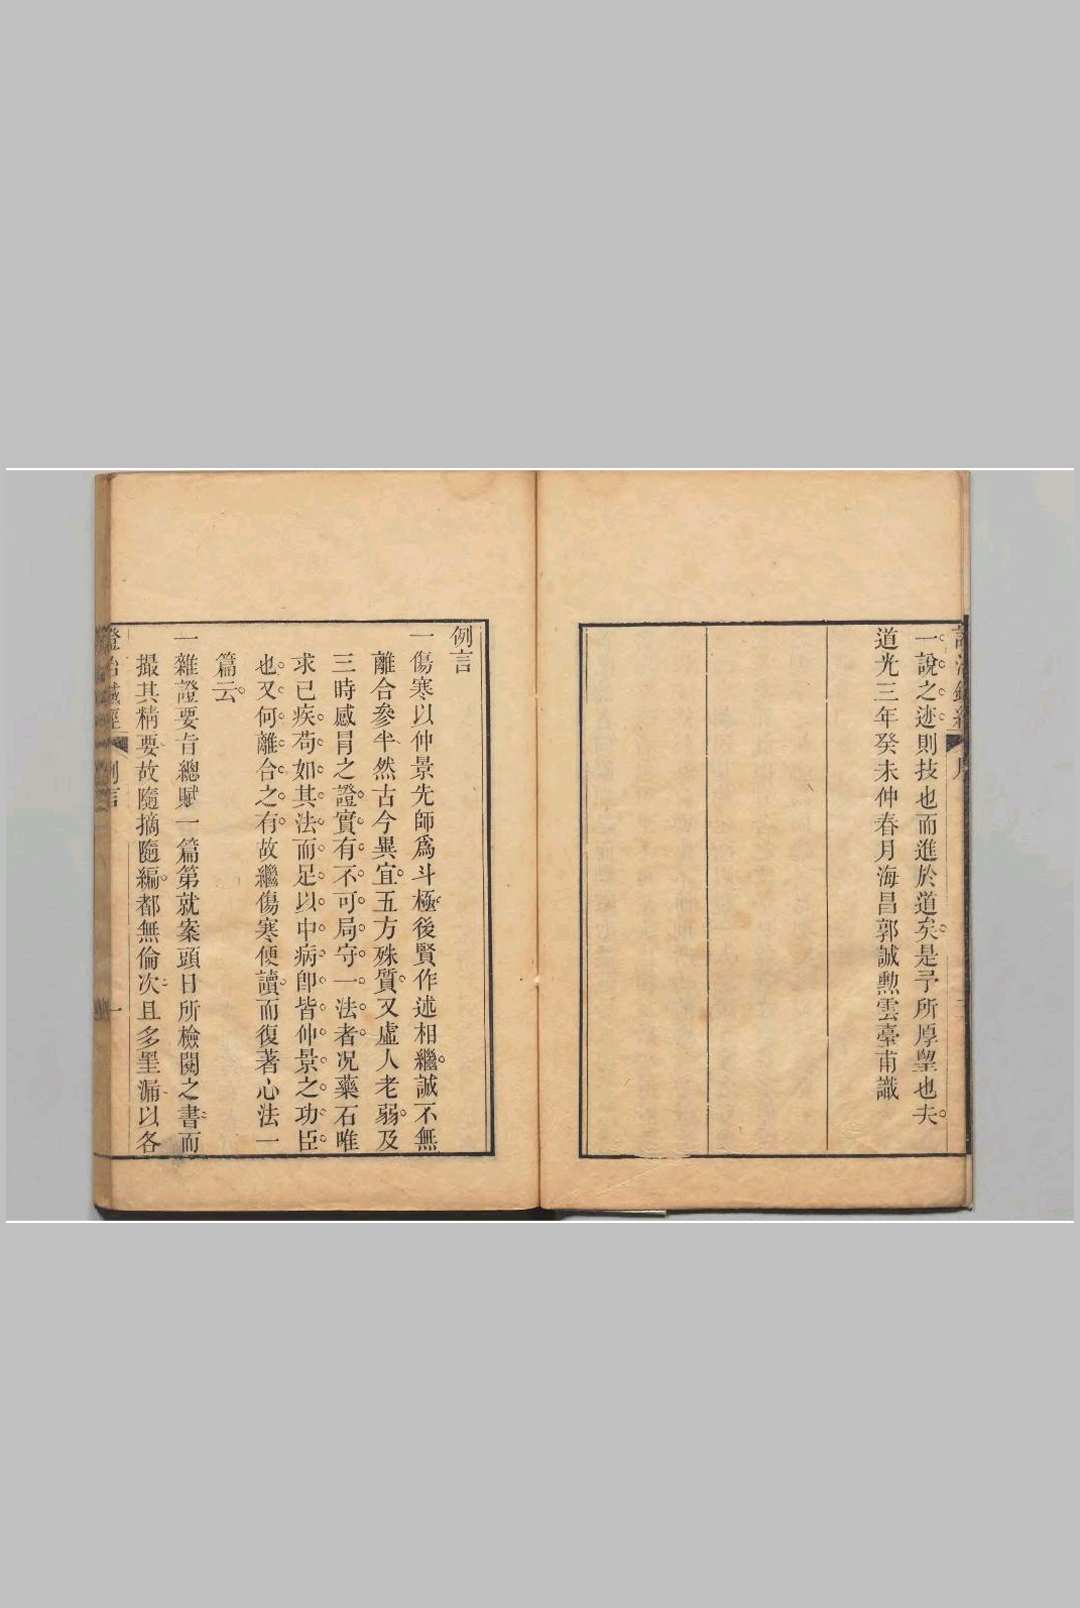 一說之迹則技也而進於道矣是予所厚望也夫
道光三年癸未仲春月海昌郭誠勲雲臺甫識
例言
一傷寒以仲景先師爲斗極後賢作述相繼誠不無
離合參半然古今異宜五方殊質又虛人老弱及
三時感冐之證實有不可局守一法者况藥石唯
求已疾苟如其法而足以中病卽皆仲景之功臣
也又何離合之有故繼傷寒便讀而復著心法一
篇云
一雜證要㫖總賦一篇第就案頭日所檢閱之書而
撮其精要故隨摘隨編都無倫次且多罣漏以各
證治鍼經
例言
一